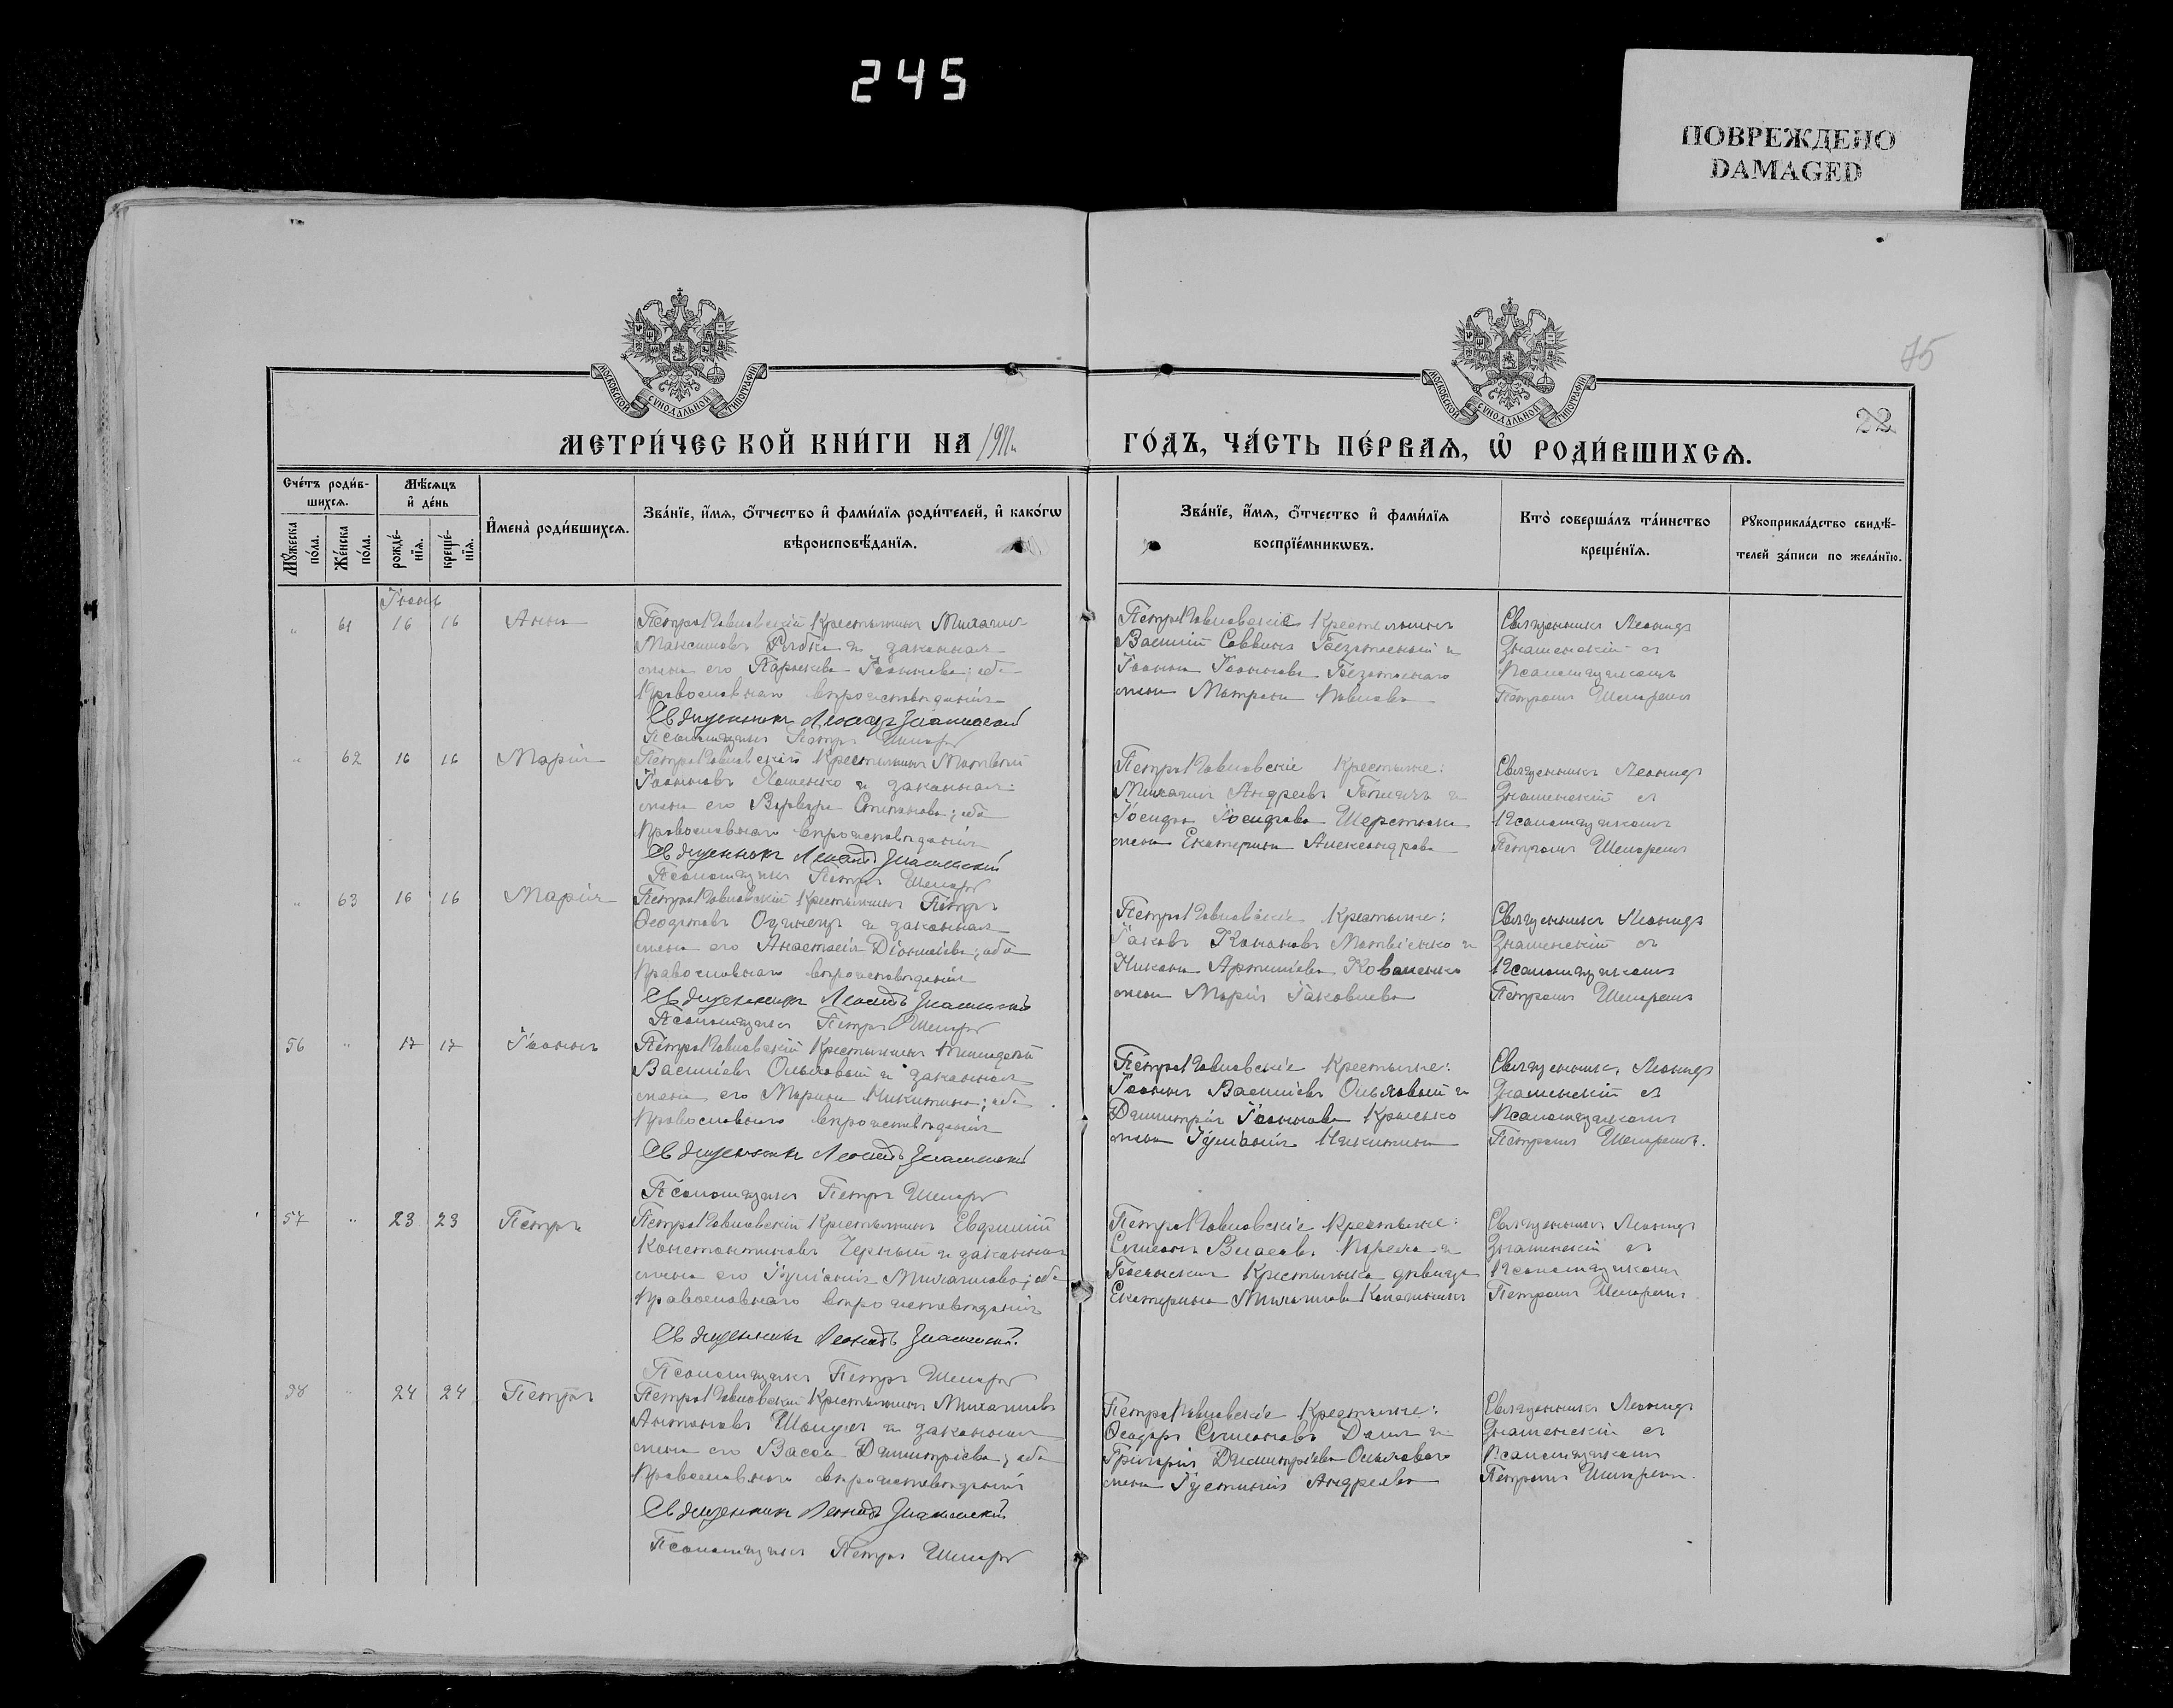 245
ПОВРЕЖДЕНО
DAMAGED
75
22
МОСКОВСКОЙ СѴНОДАЛЬНОЙ ТИПОГРАФІИ
МОСКОВСКОЙ СѴНОДАЛЬНОЙ ТИПОГРАФІИ
МЕТРИ́ЧЕСКОЙ КНИ́ГИ НА 1911
ГО́ДЪ, ЧА́СТЬ ПЕ́РВАѦ, Ѡ҆ РОДИ́ВШИХСѦ.
Сче́тъ роди́в-
шихсѧ.
Мѹ́жеска по́ла.
Же́нска по́ла.
Мѣ́сѧцъ
и҆ де́нь
рожде́-
нїѧ.
креще́-
нїѧ.
И҆мена̀ роди́вшихсѧ.
Зва́нїе, и҆́мѧ, ѻ҆́тчество и҆ фами́лїѧ роди́телей, и҆ како́гѡ
вѣроисповѣ́данїѧ.
Зва́нїе, и҆́мѧ, ѻ҆́тчество и҆ фами́лїѧ
воспрїе́мникѡвъ.
Кто̀ соверша́лъ та́инство
креще́нїѧ.
Рꙋкоприкла́дство свидѣ́-
телей за́писи по жела́нїю.
Іюнь
" 61 16 16 Анна
Петропавловскій крестьянинъ Михаилъ
Максимовъ и законная
жена его Іоаннова; оба
православнаго вѣроисповѣданія
Священникъ Леонидъ Знаменскій
Псаломщикъ Петръ Шепаръ
Петропавловскіе крестьяне
Василій Саввинъ и
Іоанна Іоаннова
жена Матрона Павлова
Священникъ Леонидъ
Знаменскій съ
Псаломщикомъ
Петромъ Шепаремъ
" 62 16 16 Марія
Петропавловскій крестьянинъ Матвѣй
Іоанновъ и законная
жена его Варвара Степанова; оба
православнаго вѣроисповѣданія
Священникъ Леонидъ Знаменскій
Псаломщикъ Петръ Шепаръ
Петропавловскіе крестьяне:
Михаилъ Андреевъ и
Іосифа Іосифова Шерстюка
жена Екатерина Александрова
Священникъ Леонидъ
Знаменскій съ
Псаломщикомъ
Петромъ Шепаремъ
" 63 16 16 Марія
Петропавловскій крестьянинъ Петръ
Ѳеодотовъ Одинецъ и законная
жена его Анастасія Діонисіева; оба
православнаго вѣроисповѣданія
Священникъ Леонидъ Знаменскій
Псаломщикъ Петръ Шепаръ
Петропавловскіе крестьяне:
Іаковъ Кононовъ Матвіенко и
Никона Артеміева Коваленко
жена Марія Іаковлева
Священникъ Леонидъ
Знаменскій съ
Псаломщикомъ
Петромъ Шепаремъ
56 " 17 17 Іоаннъ
Петропавловскій крестьянинъ
Василіевъ Ольховый и законная
жена его Марина Никитина; оба
православнаго вѣроисповѣданія
Священникъ Леонидъ Знаменскій
Псаломщикъ Петръ Шепаръ
Петропавловскіе крестьяне:
Іоаннъ Василіевъ Ольховый и
Димитрія Іоаннова
жена Іуліанія Никитина
Священникъ Леонидъ
Знаменскій съ
Псаломщикомъ
Петромъ Шепаремъ.
57 " 23 23 Петръ
Петропавловскій крестьянинъ Евфимій
Константиновъ Черный и законная
жена его Іуліанія Михаилова; оба
православнаго вѣроисповѣданія
Священникъ Леонидъ Знаменскій.
Псаломщикъ Петръ Шепаръ
Петропавловскіе крестьяне:
Симеонъ Власовъ и
крестьянка дѣвица
Екатерина Михаилова
Священникъ Леонидъ
Знаменскій съ
Псаломщикомъ
Петромъ Шепаремъ.
58 " 24 24 Петръ
Петропавловскій крестьянинъ Михаилъ
Антоновъ и законная
жена его Васса Димитріева; оба
православнаго вѣроисповѣданія
Священникъ Леонидъ Знаменскій
Псаломщикъ Петръ Шепаръ
Петропавловскіе крестьяне:
Ѳеодоръ Симеоновъ и
Григорія Димитріева Ольховаго
жена Іустинія Андреева
Священникъ Леонидъ
Знаменскій съ
Псаломщикомъ
Петромъ Шепаремъ.